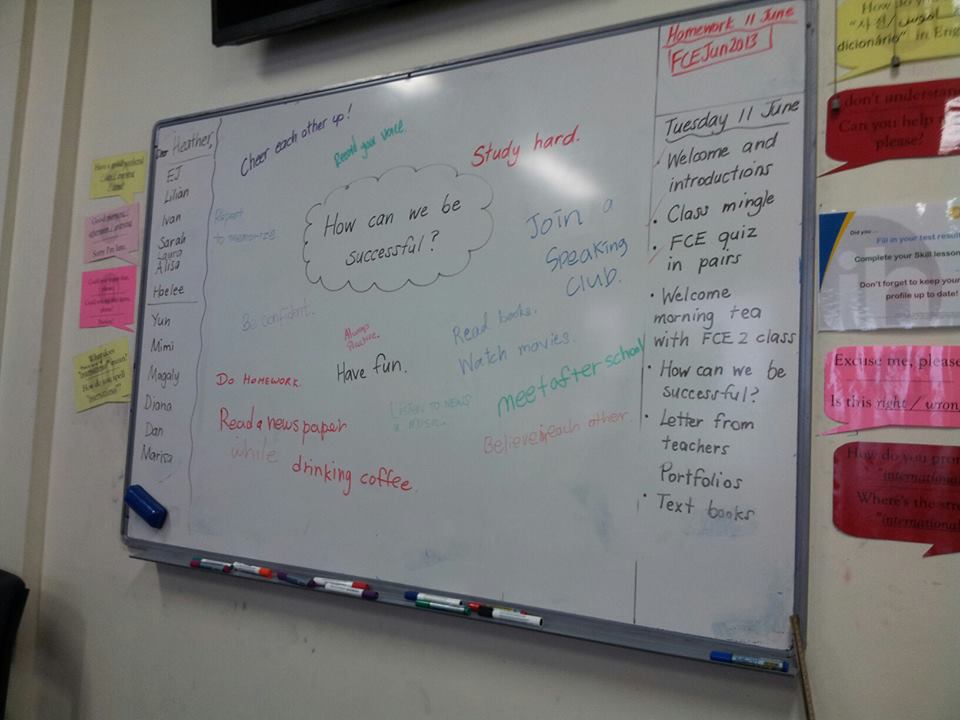 Dear Heather,
EJ
Lilian
Ivan
Sarah
Laura
Alisa
Haelee
Yun
Mimi
Magaly
Diana
Dan
Marisa
Cheer each other up!
Record your voice.
Study hard.
Repeat
to memorize.
How can we be
successful?
Join a
Speaking
Club.
Be confident.
Always
Practice.
Have fun.
Read books.
Watch movies.
Do HOMEWORK.
Listen to news
& music.
meet after school
Read a newspaper
while drinking coffee.
Believe in each other.
Homework 11 June
FCEJun2013
Tuesday 11 June
Welcome and
introductions
• Class mingle
• FCE quiz
in pairs
• Welcome
morning tea
with FCE 2 class
• How can we be
successful?
• Letter from
teachers
Portfolios
• Text books
Have a good weekend
Sorry I'm late.
What does
"international" mean?
How do you spell
"international"?
How do
dicionário" in Eng
don't understan
Can you help
please?
Did you ...
Fill in your test result
Complete your Skill lesson
Don't forget to keep your
profile up to date!
Excuse me, please
Is this right / wron
How do you pro
"internationa
Where's the stre
"internationa